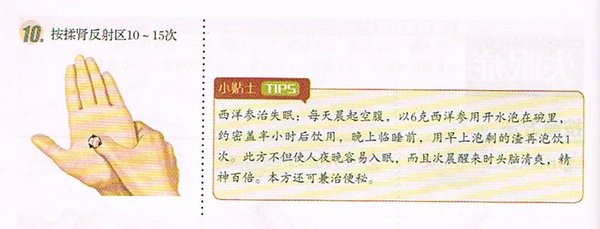 10. 按揉肾反射区10～15次
小贴士 TIPS
西洋参治失眠：每天晨起空腹，以6克西洋参用开水泡在碗里，
约密盖半小时后饮用，晚上临睡前，用早上泡剩的渣再泡饮1
次。此方不但使人夜晚容易入眠，而且次晨醒来时头脑清爽，精
神百倍。本方还可兼治便秘。